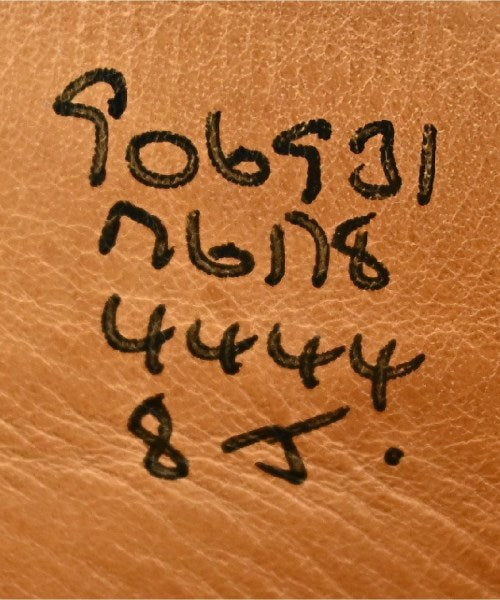 906931
76178
4444
8 J.